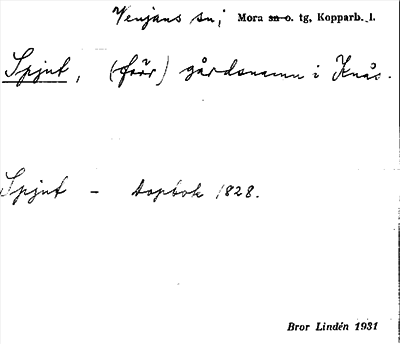 Venjans sn; Mora sn o. tg, Kopparb. l.
Spjut, (föör) gårdsnamn i Knås.
Spjut - dopbok 1828.
Bror Lindén 1931